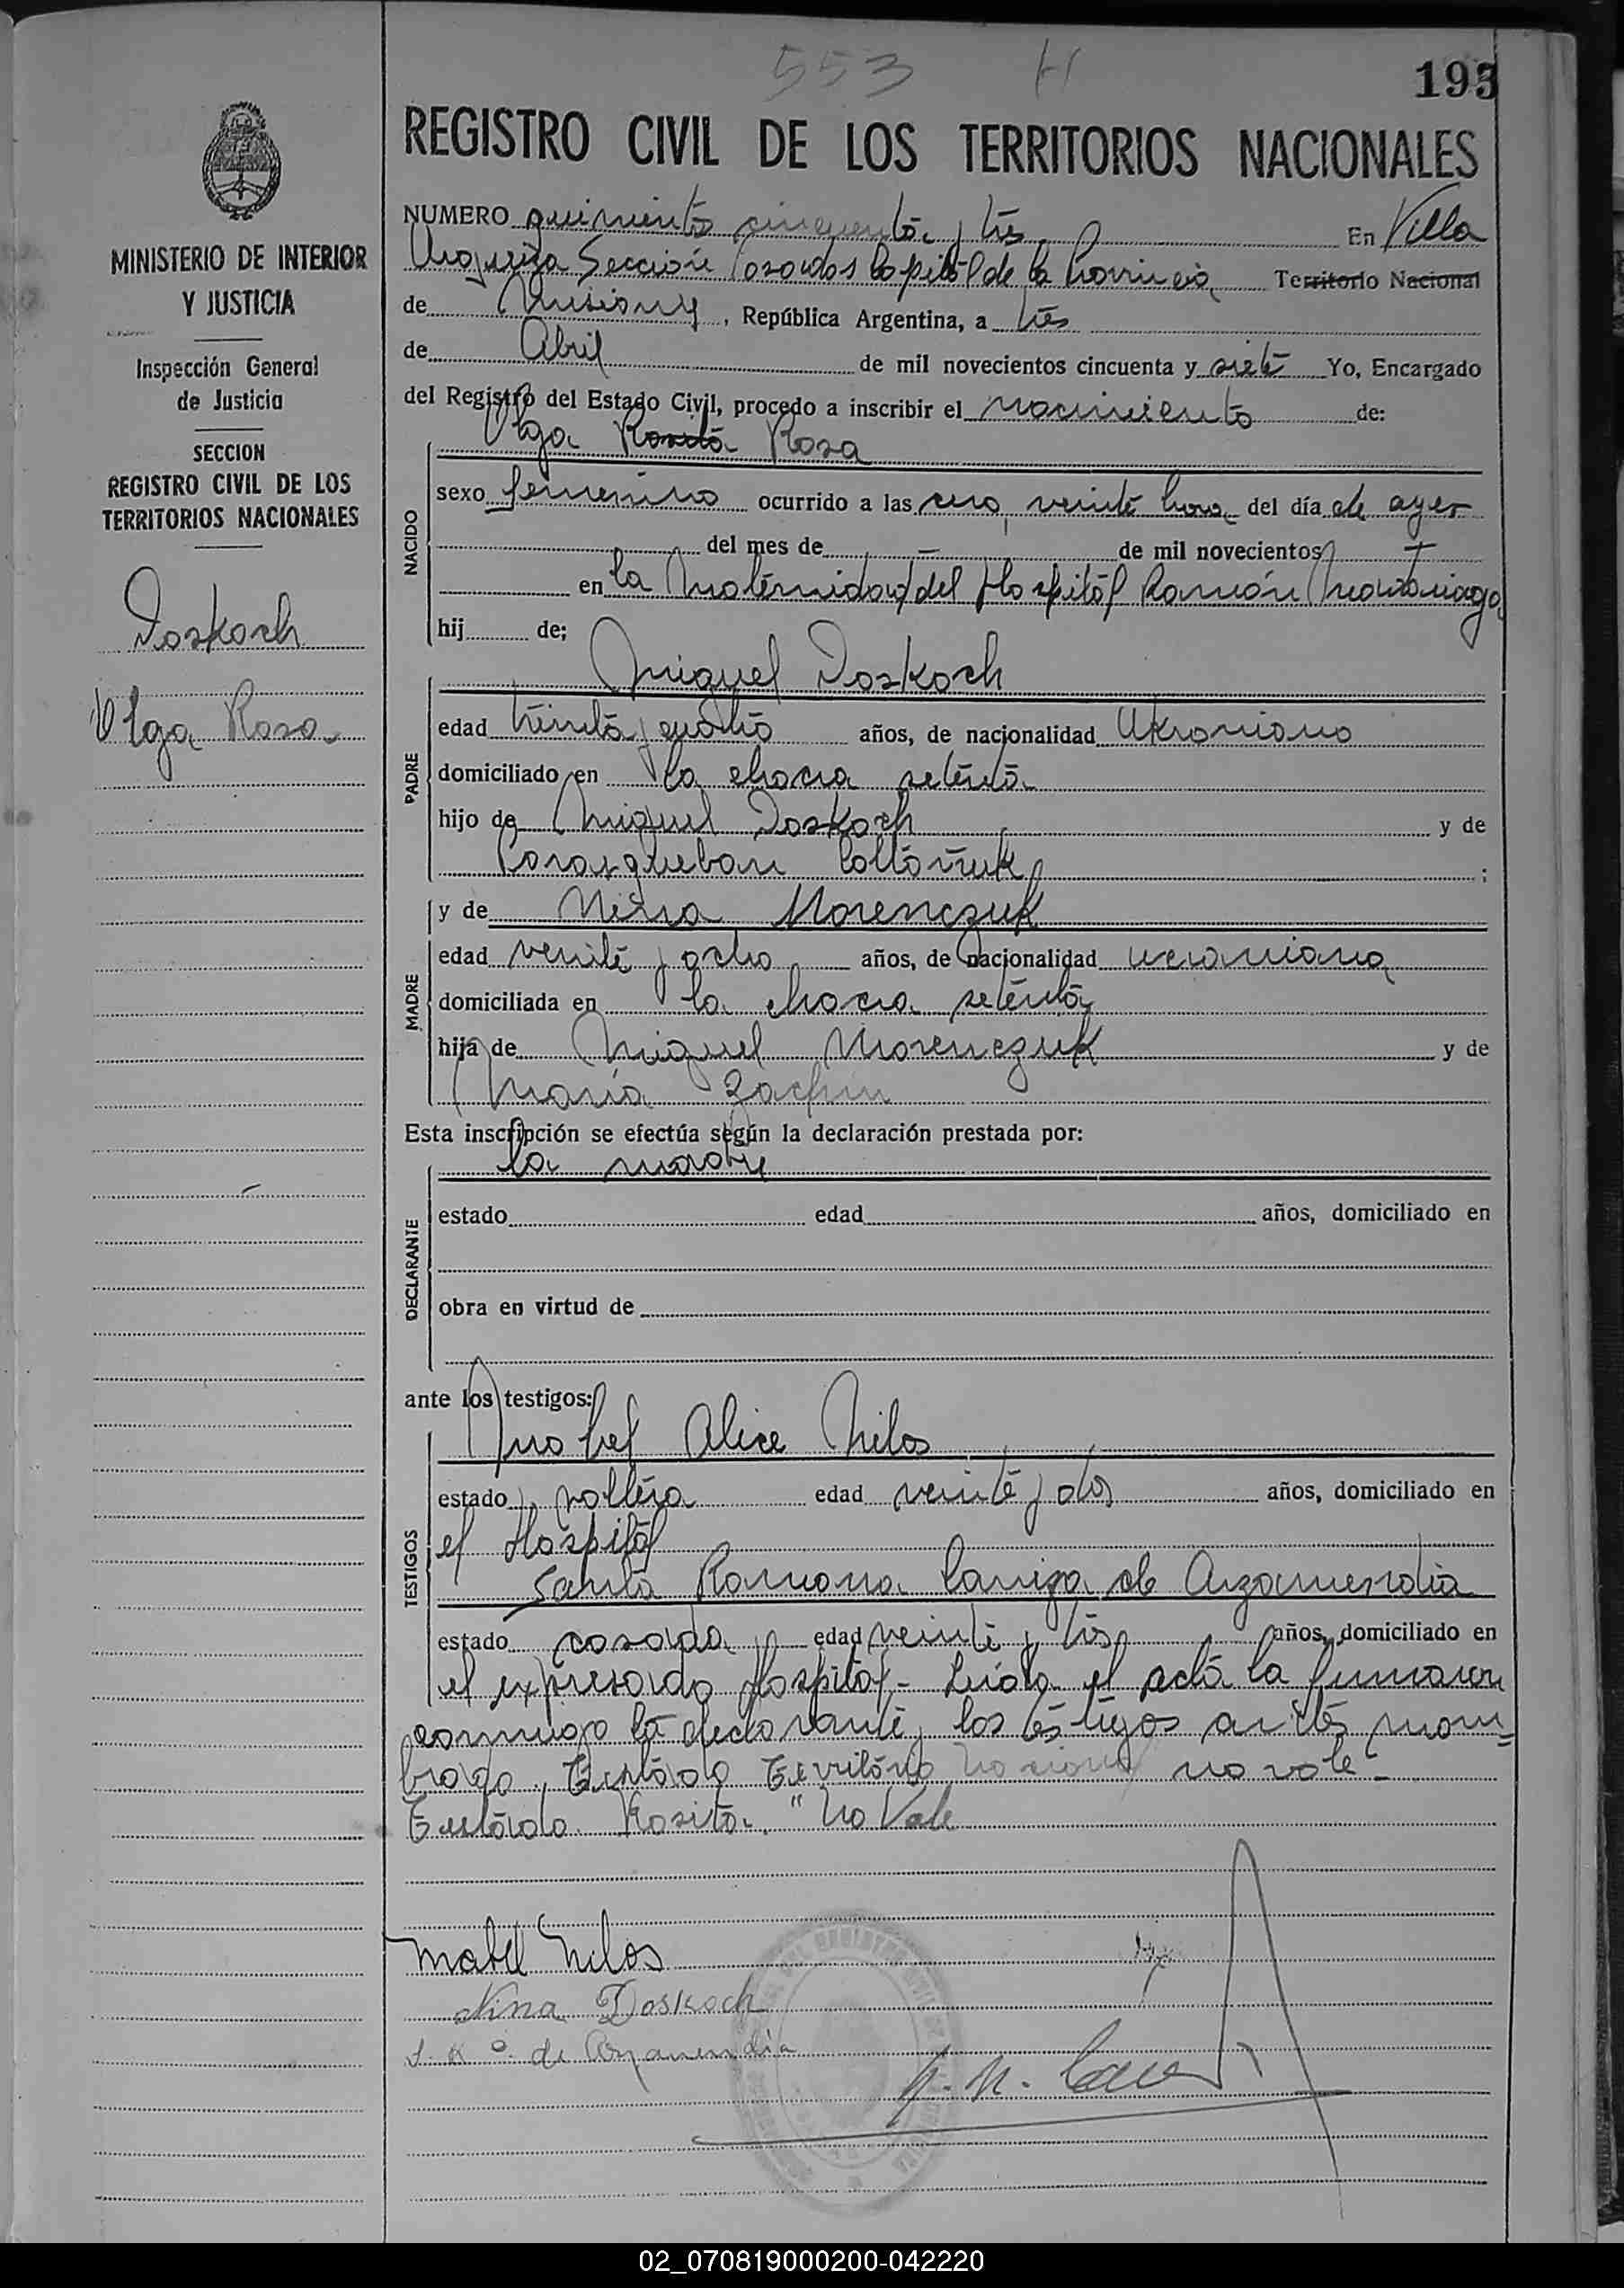 553 H
193
REGISTRO CIVIL DE LOS TERRITORIOS NACIONALES
MINISTERIO DE INTERIOR
Y JUSTICIA
Inspección General
de Justicia
SECCION
REGISTRO CIVIL DE LOS
TERRITORIOS NACIONALES
Doskoch
Olga Rosa
NUMERO quinientos cincuenta y tres En Villa
Urquiza Sección Posadas Capital de la Provincia Territorio Nacional
de Misiones, República Argentina, a tres
de Abril de mil novecientos cincuenta y siete Yo, Encargado
del Registro del Estado Civil, procedo a inscribir el nacimiento de:
NACIDO
Olga Rosita Rosa
sexo femenino ocurrido a las cero, veinte hora del día de ayer
del mes de — de mil novecientos
en la Maternidad del Hospital Ramón Madariaga
hij de;
PADRE
Miguel Doskoch
edad treinta y cuatro años, de nacionalidad Ukraniano
domiciliado en la chacra setenta
hijo de Miguel Doskoch y de
;
MADRE
y de Nina Morenczuk
edad veinte y ocho años, de nacionalidad ucraniana
domiciliada en la chacra setenta
hija de Miguel Morenczuk y de
María Zachin
Esta inscripción se efectúa según la declaración prestada por:
DECLARANTE
la madre
estado edad años, domiciliado en
obra en virtud de
ante los testigos:
TESTIGOS
Mabel Alice Milos
estado soltera edad veinte y dos años, domiciliado en
el Hospital
Santa Ramona Caniza de Azamendia
estado casada edad veinte y tres años, domiciliado en
el expresado Hospital - Leida el acta la firmaron
conmigo la declarante y los testigos antes nom=
brado, Testado Territorio Nacional no vale -
Testado Rosita " No Vale
Mabel Milos
Nina Doskoch
S. R. C. de Azamendia
02_070819000200-042220